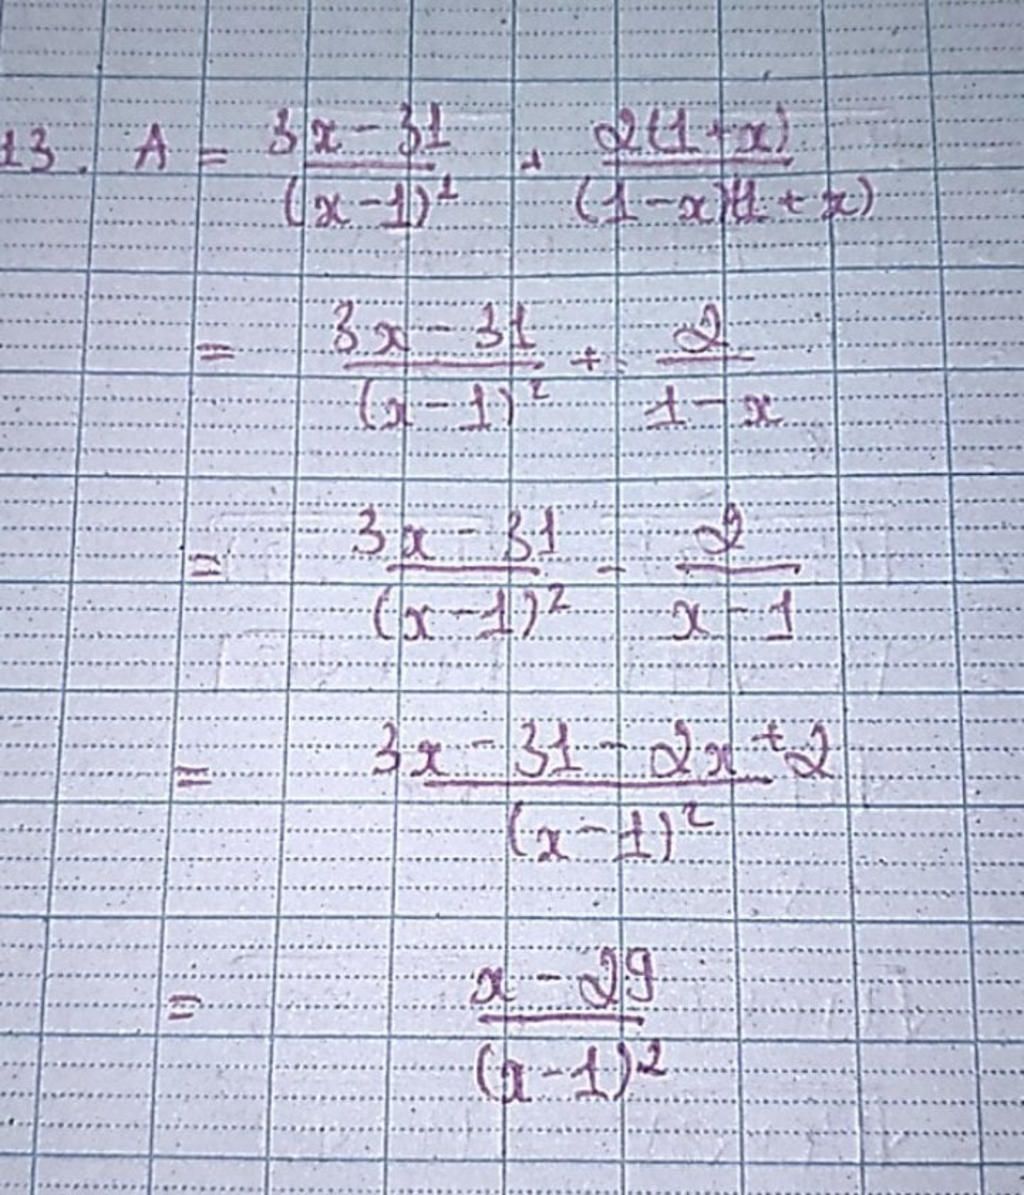 13. A = \frac{3x-31}{(x-1)^2} + \frac{2(1+x)}{(1-x)(1+x)}
= \frac{3x-31}{(x-1)^2} + \frac{2}{1-x}
= \frac{3x-31}{(x-1)^2} - \frac{2}{x-1}
= \frac{3x-31-2x+2}{(x-1)^2}
= \frac{x-29}{(x-1)^2}